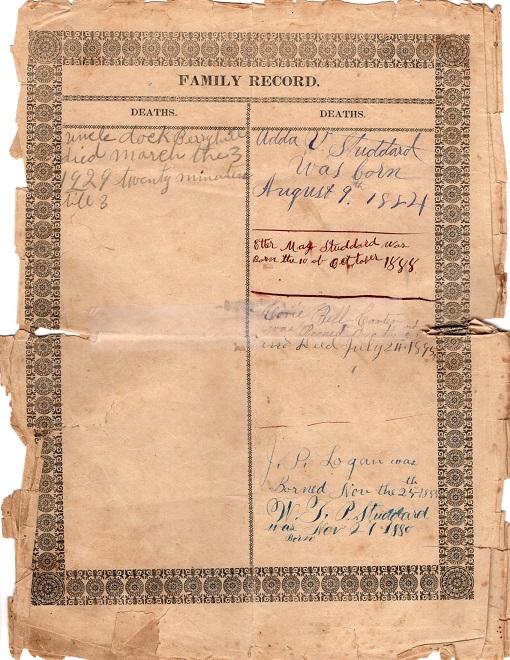 FAMILY RECORD.
DEATHS.
uncle dock
died march the 3
1929 twenty minutes
till 3
DEATHS.
Adda V. Studdard
was born
August 9th 1884
Etter May Studdard was
Born the 10 of October 1888
Bell
was
and Died July 24 1895
J. P. Logan was
Borned Nov the 25th
W. T. P. Studdard
was Nov 21 1880
Born